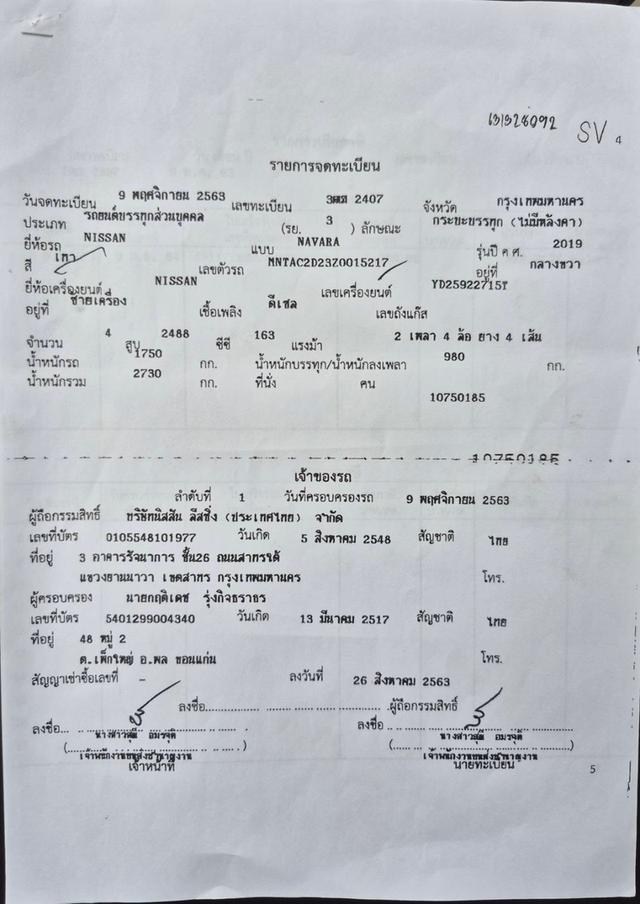 131328092 SV 4
รายการจดทะเบียน
วันจดทะเบียน 9 พฤศจิกายน 2563 เลขทะเบียน 2407 จังหวัด กรุงเทพมหานคร
ประเภท รถยนต์บรรทุกส่วนบุคคล (รย. 3 ) ลักษณะ กระบะบรรทุก (ไม่มีหลังคา)
ยี่ห้อรถ NISSAN แบบ NAVARA รุ่นปี ค.ศ. 2019
สี เทา เลขตัวรถ MNTAC2D23Z0015217 อยู่ที่ กลางขวา
ยี่ห้อเครื่องยนต์ NISSAN เลขเครื่องยนต์ YD25922715T
อยู่ที่ ซ้ายเครื่อง เชื้อเพลิง ดีเซล เลขถังแก๊ส
จำนวน 4 สูบ 2488 ซีซี 163 แรงม้า 2 เพลา 4 ล้อ ยาง 4 เส้น
น้ำหนักรถ 1750 กก. น้ำหนักบรรทุก/น้ำหนักลงเพลา 980 กก.
น้ำหนักรวม 2730 กก. ที่นั่ง คน
10750185
10750185
เจ้าของรถ
ลำดับที่ 1 วันที่ครอบครองรถ 9 พฤศจิกายน 2563
ผู้ถือกรรมสิทธิ์ บริษัทนิสสัน ลีสซิ่ง (ประเทศไทย) จำกัด
เลขที่บัตร 0105548101977 วันเกิด 5 สิงหาคม 2548 สัญชาติ ไทย
ที่อยู่ 3 อาคารรัจนาการ ชั้น26 ถนนสาทรใต้
แขวงยานนาวา เขตสาทร กรุงเทพมหานคร โทร.
ผู้ครอบครอง นายกฤติเดช รุ่งกิจธราธร
เลขที่บัตร 5401299004340 วันเกิด 13 มีนาคม 2517 สัญชาติ ไทย
ที่อยู่ 48 หมู่ 2
ต.เพ็กใหญ่ อ.พล ขอนแก่น โทร.
สัญญาเช่าซื้อเลขที่ - ลงวันที่ 26 สิงหาคม 2563
ลงชื่อ ผู้ถือกรรมสิทธิ์
ลงชื่อ ลงชื่อ
นางสาวสุดี อมรจุติ นางสาวสุดี อมรจุติ
เจ้าพนักงานขนส่งชำนาญงาน เจ้าพนักงานขนส่งชำนาญงาน
เจ้าหน้าที่ นายทะเบียน
5